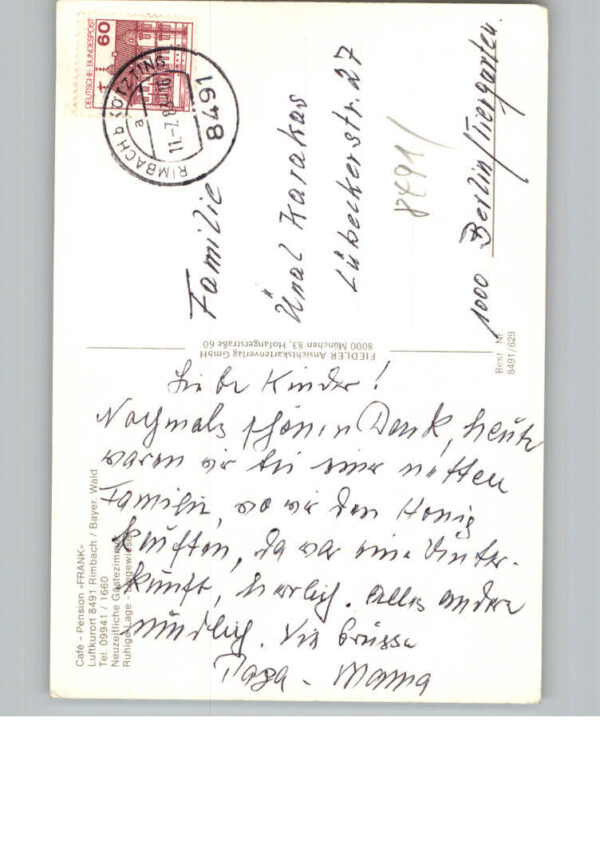 Liebe Kinder!
Nochmals schönen Dank, heute
waren wir bei einer netten
Familie, wo wir den Honig
kauften, da war eine Unter-
kunft, herrlich. Alles andere
mündlich. Viele Grüsse
Papa - Mama
Familie
Ünal Karakas
Lübeckerstr. 27
8491/
1000 Berlin/Tiergarten.
DEUTSCHE BUNDESPOST
60
RIMBACH b KÖTZTING
a
8491
FIEDLER Ansichtskartenverlag GmbH
8000 München 83, Hofangerstraße 60
Best. Nr.
8491/629
Café - Pension »FRANK«
Luftkurort 8491 Rimbach / Bayer. Wald
Tel. 09941 / 1660
Neuzeitliche Gästezimmer
Ruhige Lage -